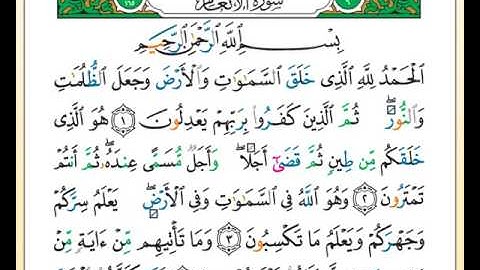 سورة الأنعام
بِسْمِ ٱللَّهِ ٱلرَّحْمَٰنِ ٱلرَّحِيمِ
ٱلْحَمْدُ لِلَّهِ ٱلَّذِى خَلَقَ ٱلسَّمَٰوَٰتِ وَٱلْأَرْضَ وَجَعَلَ ٱلظُّلُمَٰتِ
وَٱلنُّورَ ۖ ثُمَّ ٱلَّذِينَ كَفَرُوا۟ بِرَبِّهِمْ يَعْدِلُونَ ١ هُوَ ٱلَّذِى
خَلَقَكُم مِّن طِينٍ ثُمَّ قَضَىٰٓ أَجَلًا ۖ وَأَجَلٌ مُّسَمًّى عِندَهُۥ ۖ ثُمَّ أَنتُمْ
تَمْتَرُونَ ٢ وَهُوَ ٱللَّهُ فِى ٱلسَّمَٰوَٰتِ وَفِى ٱلْأَرْضِ ۖ يَعْلَمُ سِرَّكُمْ
وَجَهْرَكُمْ وَيَعْلَمُ مَا تَكْسِبُونَ ٣ وَمَا تَأْتِيهِم مِّنْ ءَايَةٍ مِّنْ